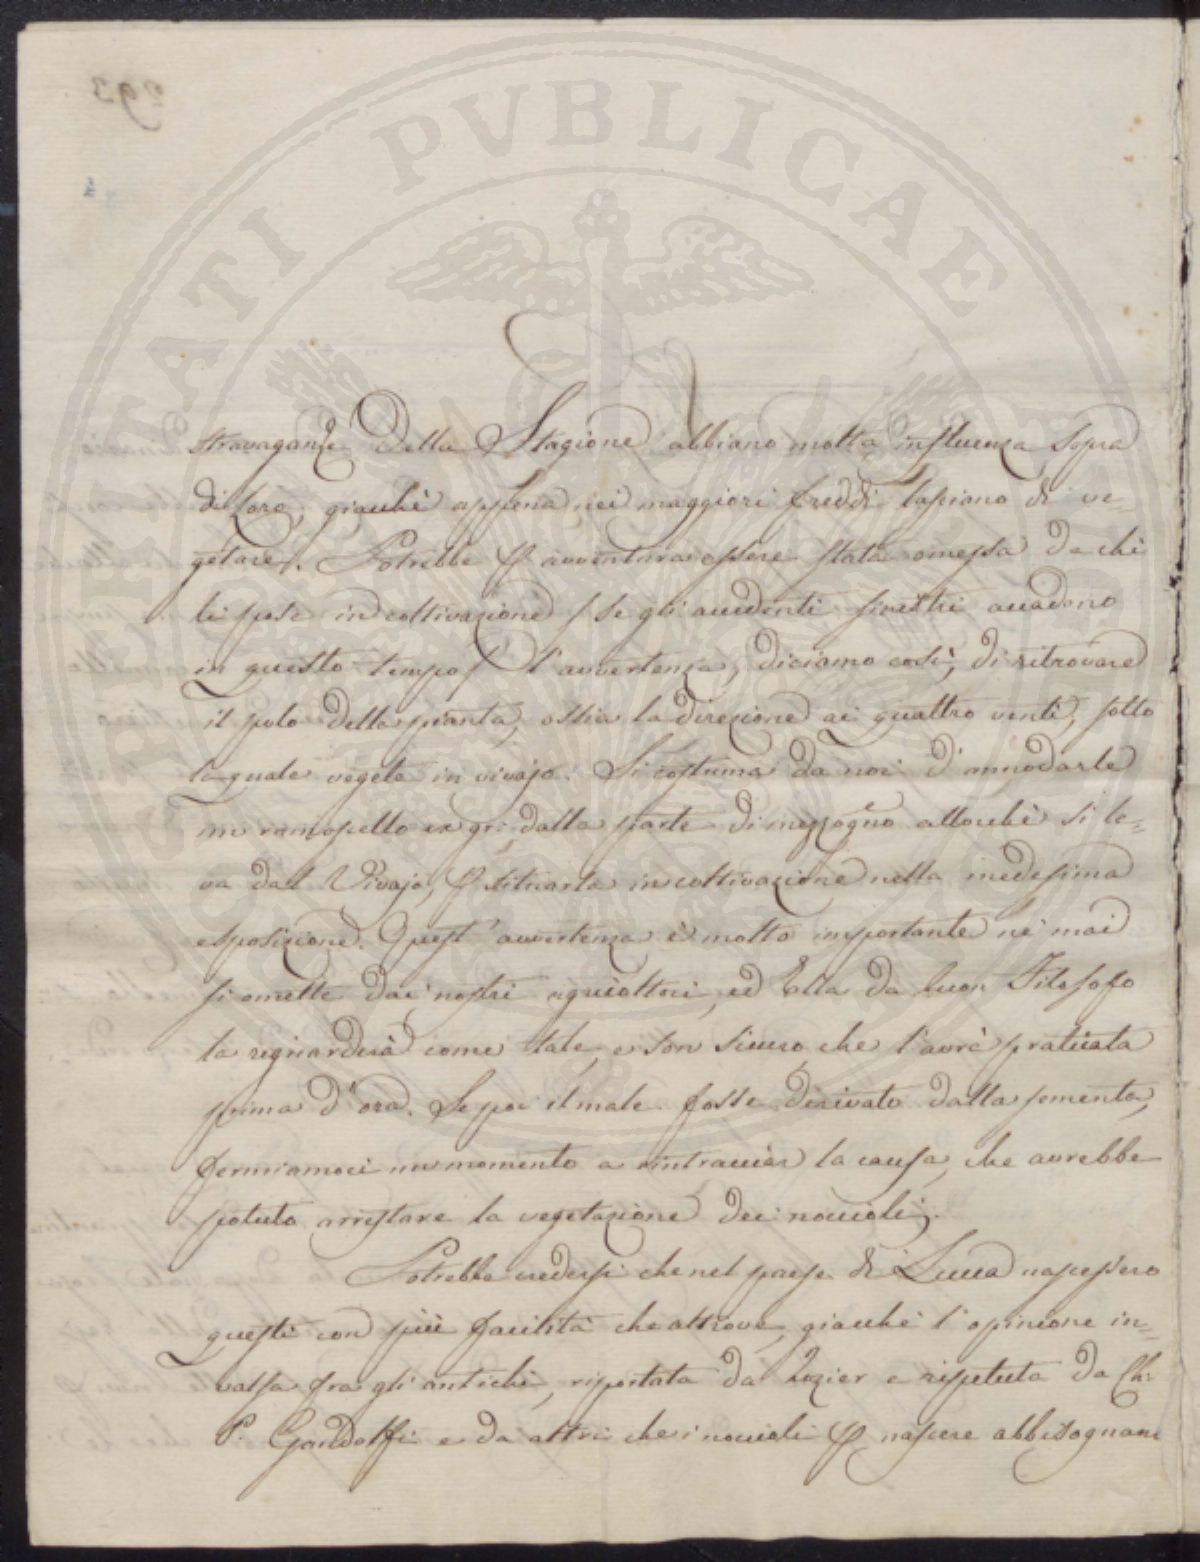 PVBLICAE
stravaganze della Stagione abbiano molta influenza sopra
di loro, giacchè appena nei maggiori freddi lasciano di ve-
getare. Potrebbe p avventura essere stata omessa da chi
li pose in coltivazione / se gli accidenti sinistri accadono
in questo tempo / l'avvertenza, diciamo così, di ritrovare
il polo della pianta, ossia la direzione ai quattro venti, sotto
la quale vegeta in vivajo. Si costuma da noi d'annodarle
un ramoscello ex gr: dalla parte di mezzogno allorchè si le=
va dal Vivajo, p situarla in coltivazione nella medesima
esposizione. Quest'avvertenza è molto importante nè mai
si omette dai nostri agricoltori, ed Ella da buon Filosofo
la riguarderà come tale, e son sicuro, che l'avrà praticata
prima d'ora. Se poi il male fosse derivato dalla sementa,
fermiamoci un momento a rintracciar la causa, che avrebbe
potuto arrestare la vegetazione dei noccioli.
Potrebbe credersi che nel paese di Lucca nascessero
questi con più facilità che altrove, giacchè l'opinione in=
valsa fra gli antichi, riportata da Rozier e ripetuta da Ch:
P. Gandolfi e da altri che i noccioli p nascere abbisognano